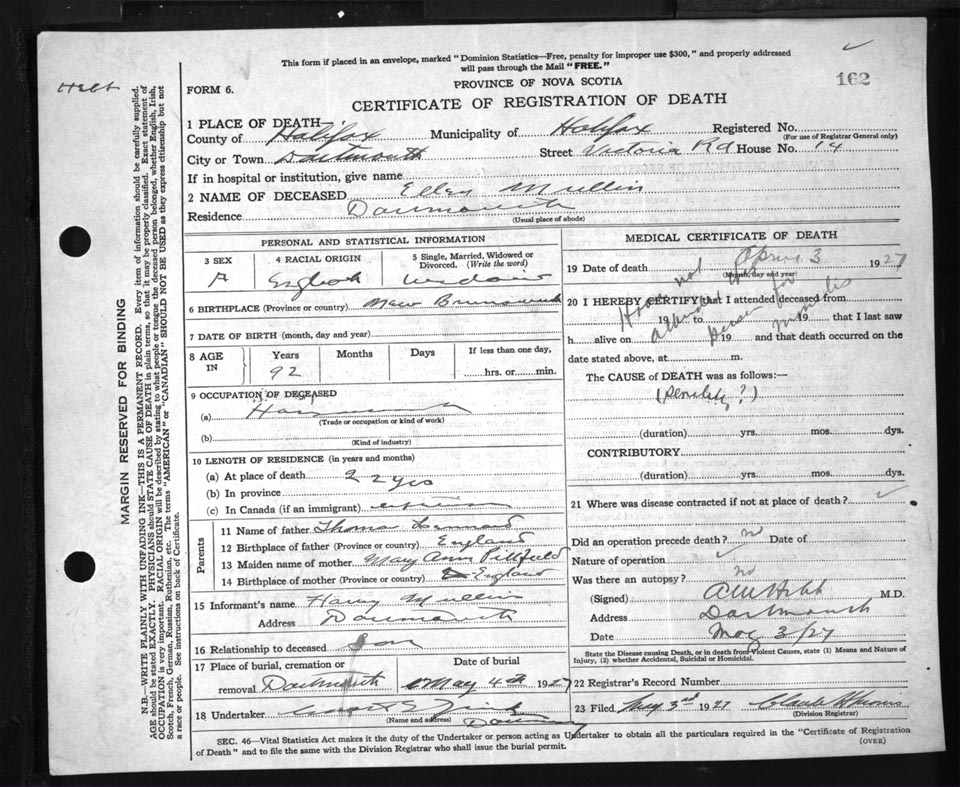 This form if placed in an envelope, marked "Dominion Statistics—Free, penalty for improper use $300," and properly addressed
will pass through the Mail "FREE."
162
FORM 6.
PROVINCE OF NOVA SCOTIA
CERTIFICATE OF REGISTRATION OF DEATH
1 PLACE OF DEATH
County of Halifax Municipality of Halifax Registered No.
(For use of Registrar General only)
City or Town Dartmouth Street Victoria Rd House No. 14
If in hospital or institution, give name
2 NAME OF DECEASED Ellen Mullin
Residence Dartmouth
(Usual place of abode)
PERSONAL AND STATISTICAL INFORMATION
3 SEX 4 RACIAL ORIGIN 5 Single, Married, Widowed or Divorced. (Write the word)
English
6 BIRTHPLACE (Province or country) New Brunswick
7 DATE OF BIRTH (month, day and year)
8 AGE IN Years Months Days If less than one day,
92 hrs. or min.
9 OCCUPATION OF DECEASED
(a)
(Trade or occupation or kind of work)
(b)
(Kind of industry)
10 LENGTH OF RESIDENCE (in years and months)
(a) At place of death 22 yrs
(b) In province
(c) In Canada (if an immigrant)
Parents
11 Name of father Thomas
12 Birthplace of father (Province or country) England
13 Maiden name of mother Mary Ann
14 Birthplace of mother (Province or country) England
15 Informant's name Harry Mullin
Address Dartmouth
16 Relationship to deceased Son
17 Place of burial, cremation or Date of burial
removal Dartmouth May 4th 1927
18 Undertaker
(Name and address)
MEDICAL CERTIFICATE OF DEATH
19 Date of death 3 1927
(Month, day and year)
20 I HEREBY CERTIFY that I attended deceased from
19 to 19 that I last saw
h alive on 19 and that death occurred on the
date stated above, at m.
Have not attended for months
The CAUSE of DEATH was as follows:—
(Senility?)
(duration) yrs. mos. dys.
CONTRIBUTORY
(duration) yrs. mos. dys.
21 Where was disease contracted if not at place of death?
Did an operation precede death? no Date of
Nature of operation
Was there an autopsy? no
(Signed) M.D.
Address Dartmouth
Date May 3/27
State the Disease causing Death, or in death from Violent Causes, state (1) Means and Nature of
Injury, (2) whether Accidental, Suicidal or Homicidal.
22 Registrar's Record Number
23 Filed May 3rd 1927
(Division Registrar)
SEC. 46—Vital Statistics Act makes it the duty of the Undertaker or person acting as Undertaker to obtain all the particulars required in the "Certificate of Registration
of Death" and to file the same with the Division Registrar who shall issue the burial permit.
(OVER)
MARGIN RESERVED FOR BINDING
N.B.—WRITE PLAINLY WITH UNFADING INK—THIS IS A PERMANENT RECORD. Every item of information should be carefully supplied.
AGE should be stated EXACTLY. PHYSICIANS should STATE CAUSE OF DEATH in plain terms, so that it may be properly classified. Exact statement of
OCCUPATION is very important. RACIAL ORIGIN will be described by stating to what people or tongue the deceased person belonged, whether English, Irish,
Scotch, French, German, Russian, Ruthenian, etc. The terms "AMERICAN" or "CANADIAN" SHOULD NOT BE USED as they express citizenship but not
a race or people. See instructions on back of Certificate.